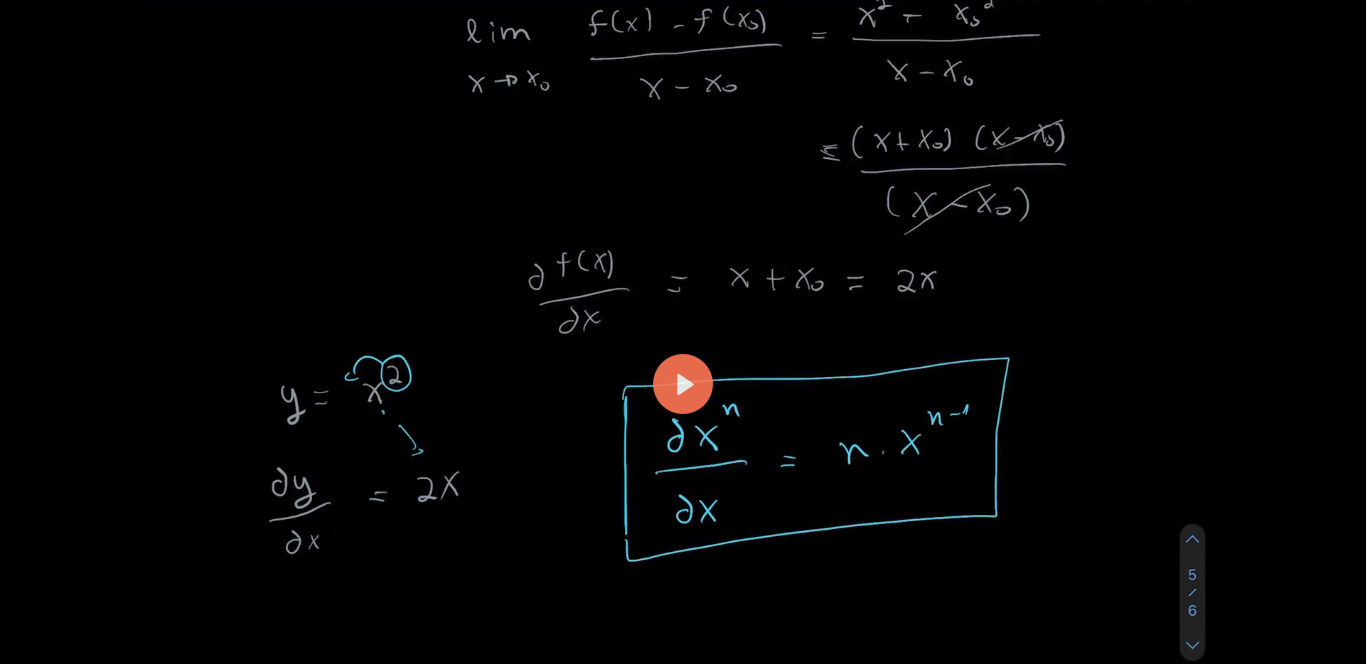 lim x→x₀ (f(x) - f(x₀))/(x - x₀) = (x² - x₀²)/(x - x₀)
= (x+x₀)(x-x₀)/(x-x₀)
∂f(x)/∂x = x + x₀ = 2x
y = x²
∂y/∂x = 2x
∂xⁿ/∂x = n · xⁿ⁻¹
5
/
6